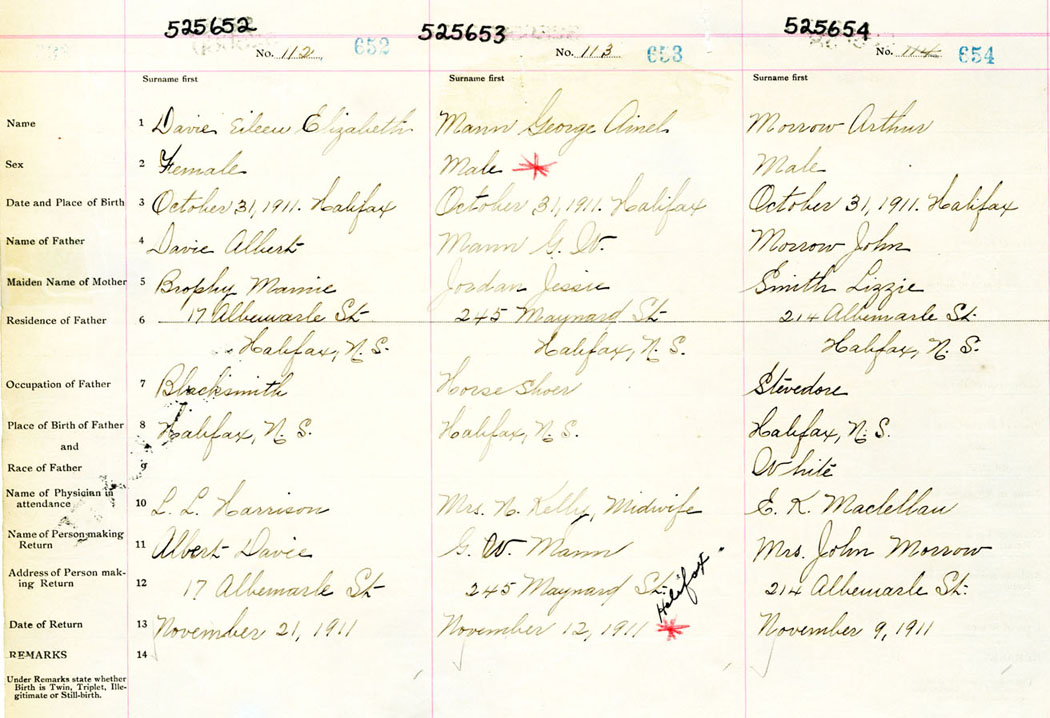 525652 525653 525654
No. 112. 652 No. 113 653 No. 114 654
Surname first Surname first Surname first
Name 1 Davie Eileen Elizabeth Mann George Morrow Arthur
Sex 2 Female Male Male
Date and Place of Birth 3 October 31, 1911. Halifax October 31, 1911. Halifax October 31, 1911. Halifax
Name of Father 4 Davie Albert Mann G. W. Morrow John
Maiden Name of Mother 5 Brophy Mamie Jordan Jessie Smith Lizzie
Residence of Father 6 17 Albemarle St 245 Maynard St 214 Albemarle St.
Halifax, N. S. Halifax, N. S. Halifax, N. S.
Occupation of Father 7 Blacksmith Horse Shoer Stevedore
Place of Birth of Father 8 Halifax, N. S. Halifax, N. S. Halifax, N. S.
and
Race of Father 9 White
Name of Physician in
attendance 10 L. L. Harrison Mrs. N. Kelly, Midwife E. K. Maclellan
Name of Person making
Return 11 Albert Davie G. W. Mann Mrs. John Morrow
Address of Person mak-
ing Return 12 17 Albemarle St 245 Maynard St. Halifax 214 Albemarle St.
Date of Return 13 November 21, 1911 November 12, 1911 November 9, 1911
REMARKS 14
Under Remarks state whether
Birth is Twin, Triplet, Ille-
gitimate or Still-birth.